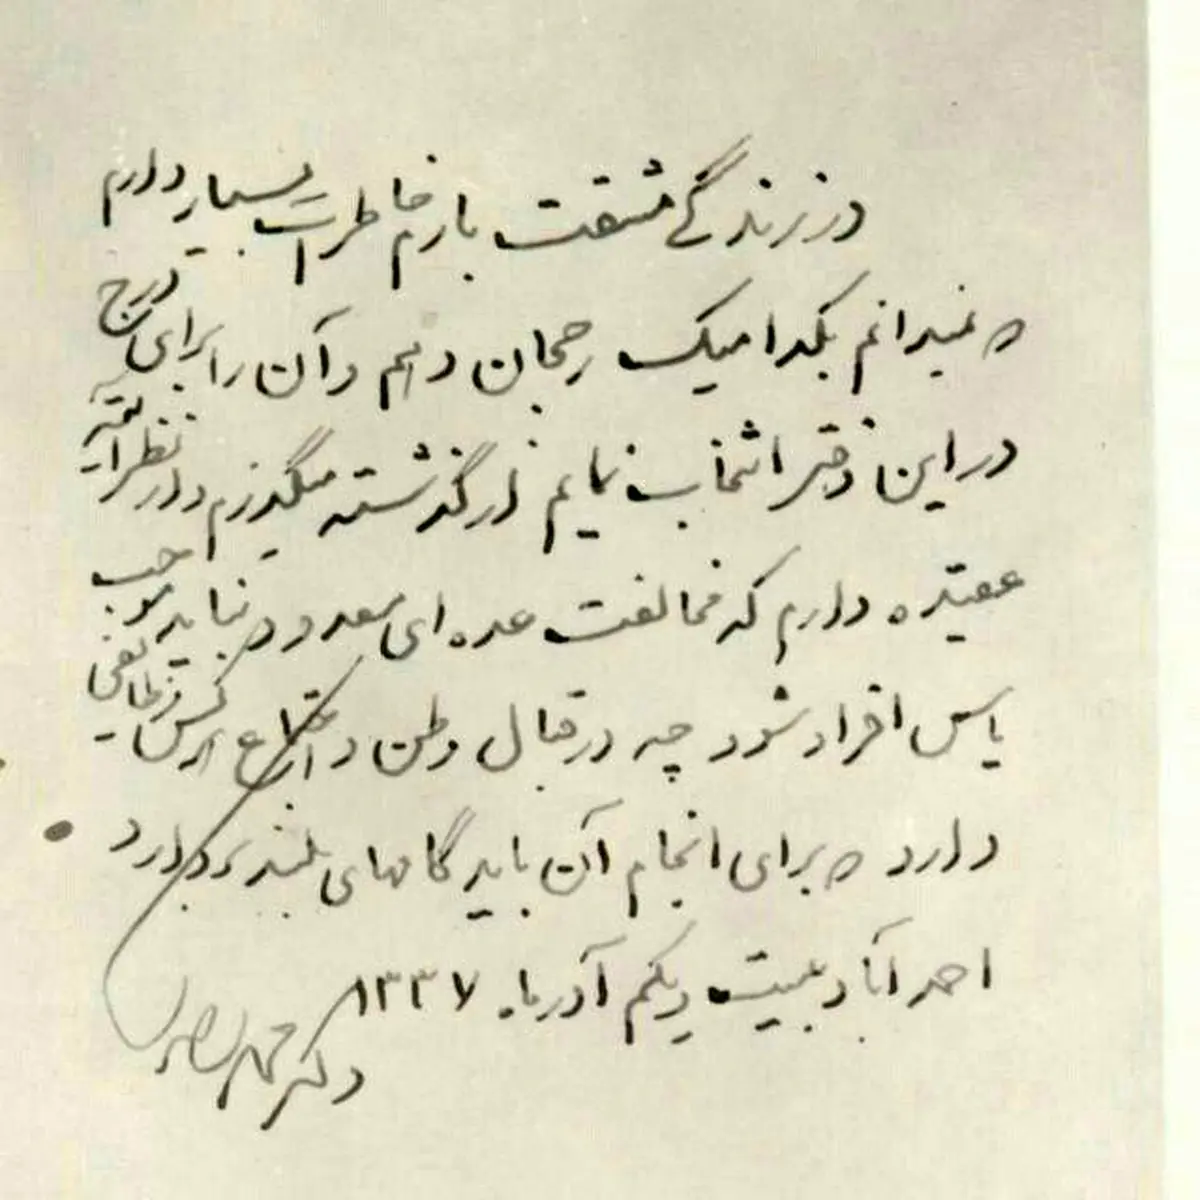 در زندگی مشقت بارم خاطرات بسیار دارم
که نمیدانم بکدامیک رجحان دهم و آن را برای درج
در این دفتر انتخاب نمایم از گذشته میگذرم و از نظر آتیه
عقیده دارم که مخالفت عده ای معدود نباید موجب
یاس افراد شود چه در قبال وطن و اجتماع هر کس وظائفی
دارد که برای انجام آن باید گامهای بلندی بردارد
احمدآباد بیست و یکم آذرماه ۱۳۳۷
دکتر محمد مصدق